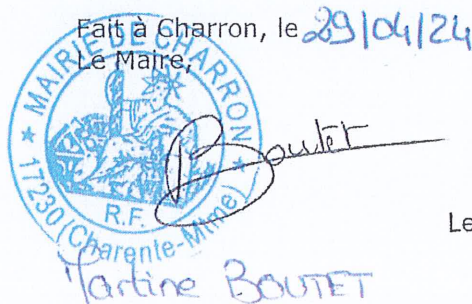 Fait à Charron, le 29/04/24
Le Maire,
★ MAIRIE DE CHARRON ★
R.F.
17230 (Charente-Mtme)
Boutet
Le
Martine BOUTET